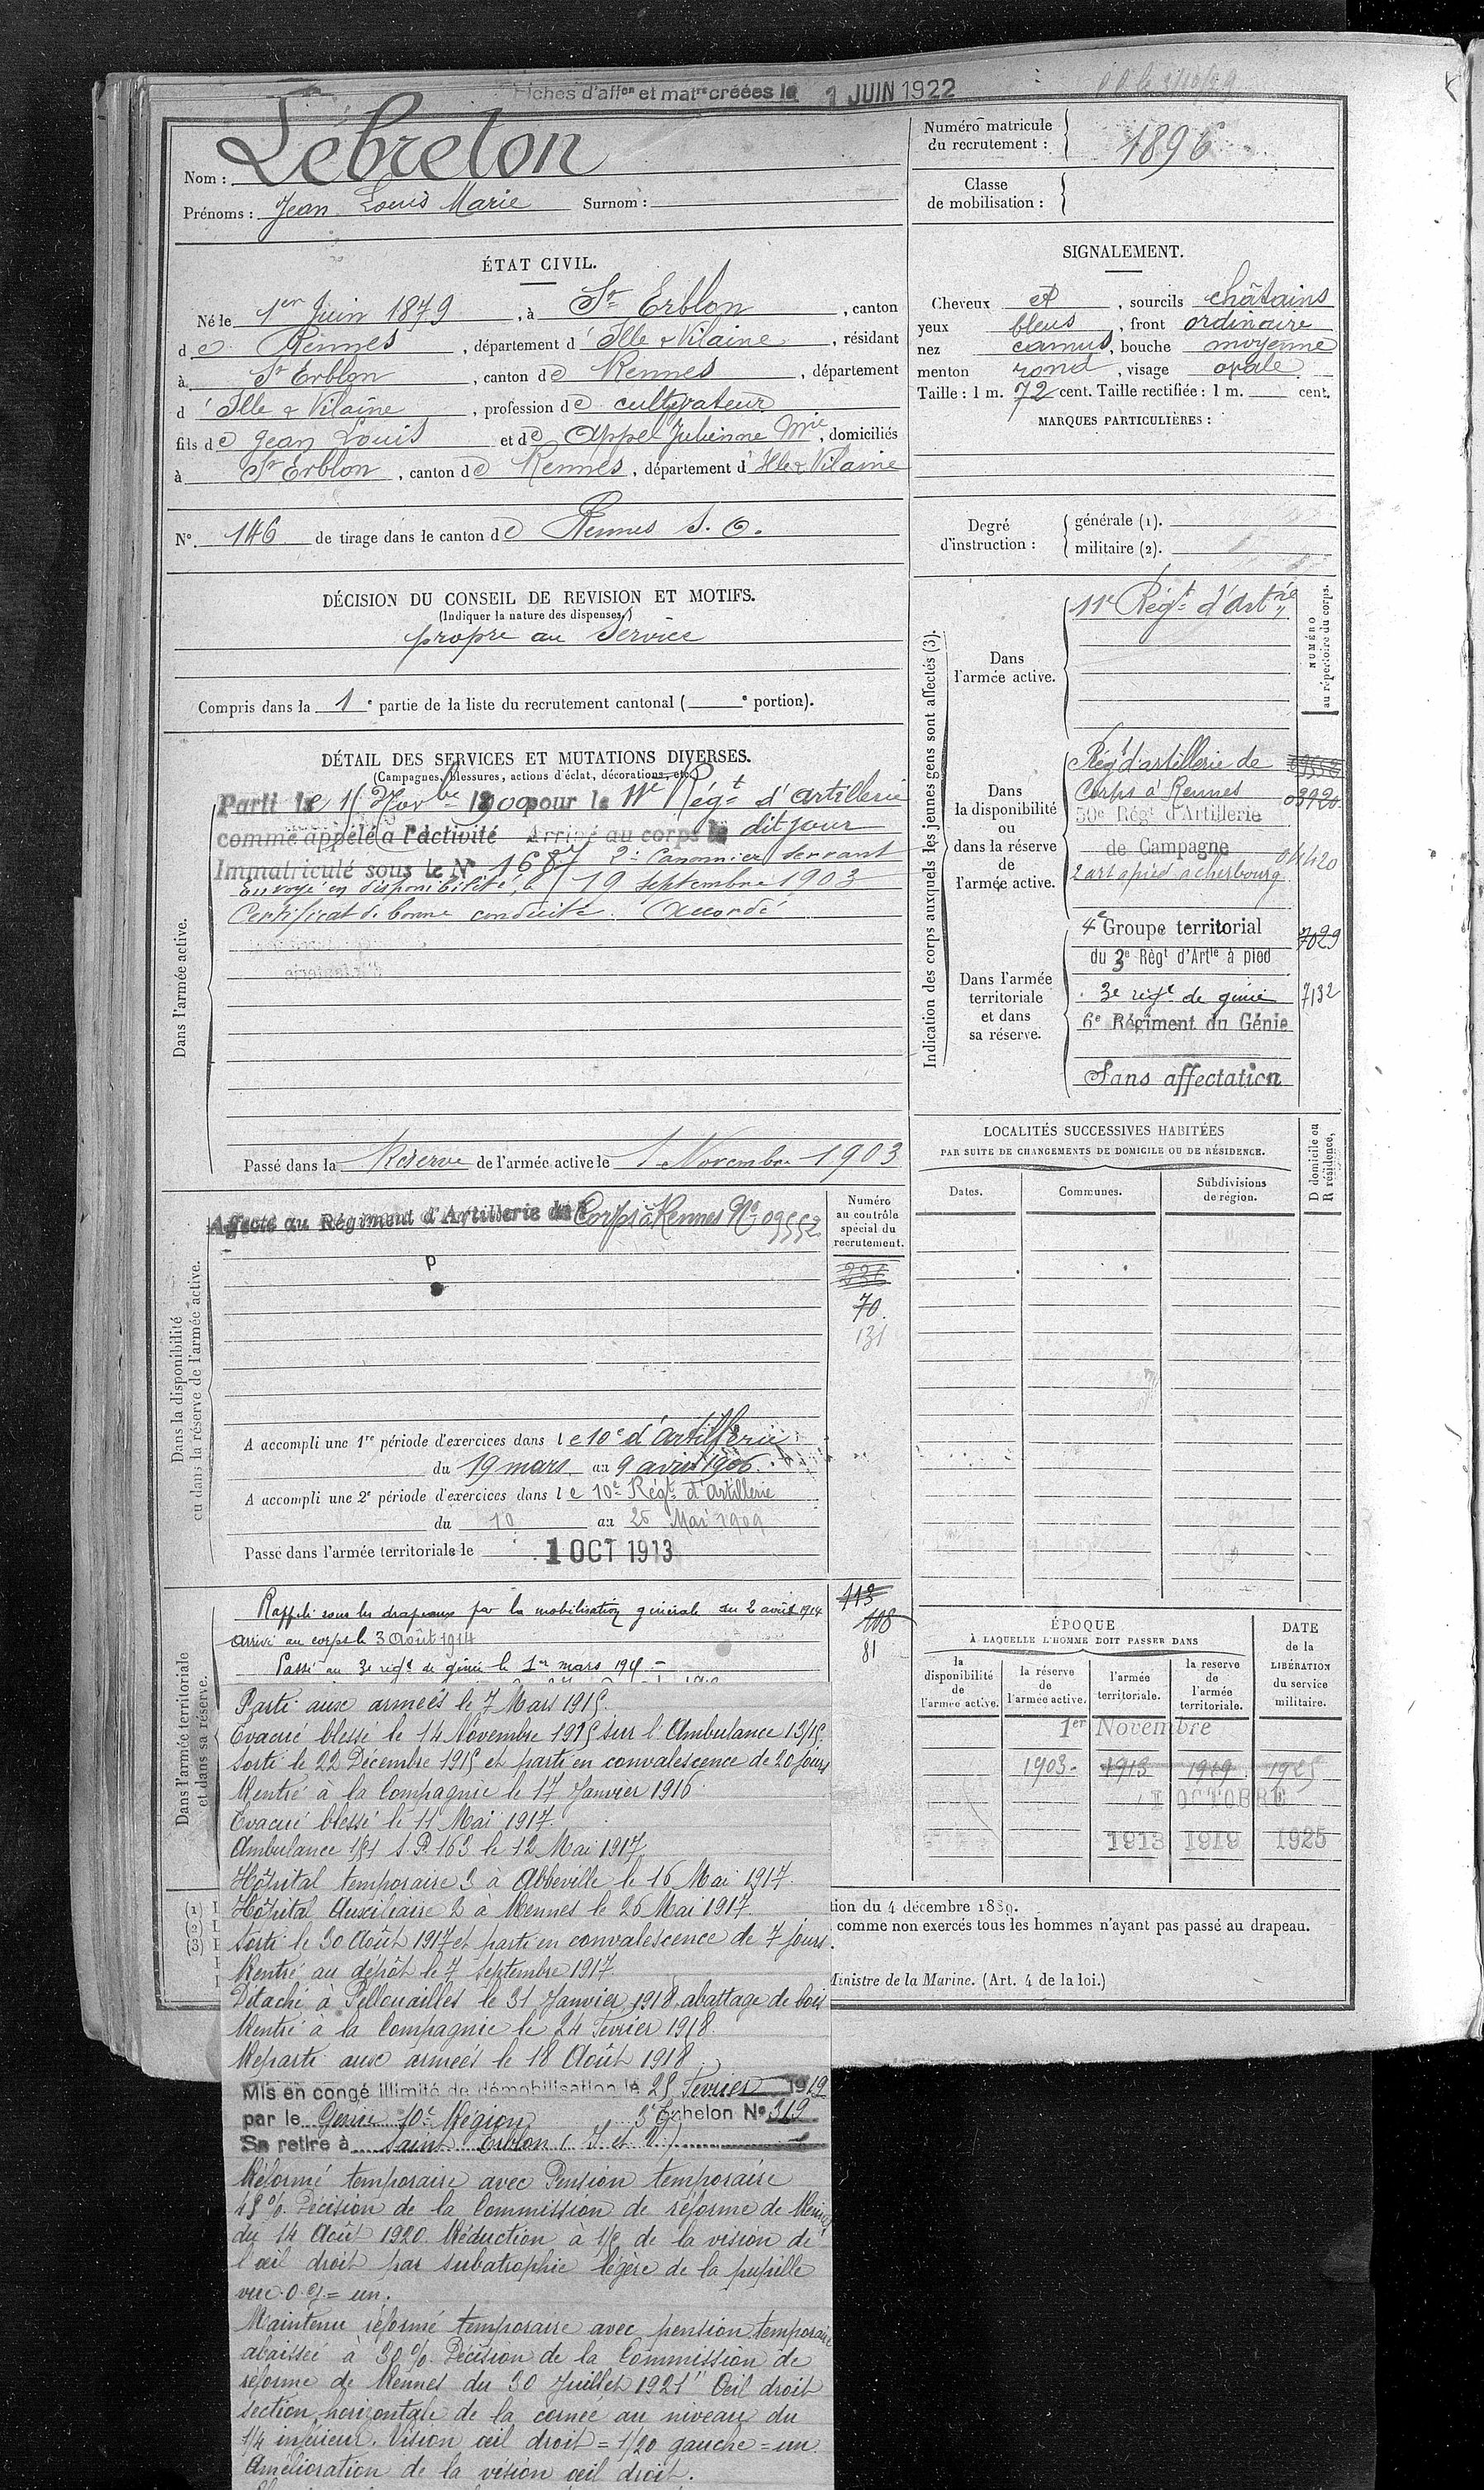 Fiches d'aff.on et mat.re créées le 1 JUIN 1922
Nom : Lebreton
Prénoms : Jean Louis Marie Surnom :
Numéro matricule du recrutement : 1896
Classe de mobilisation :
ÉTAT CIVIL.
Né le 1er Juin 1879, à St Erblon, canton
de Rennes, département d'Ille & Vilaine, résidant
à St Erblon, canton de Rennes, département
d'Ille & Vilaine, profession de cultivateur
fils de Jean Louis et de Appel Julienne Mie, domiciliés
à St Erblon, canton de Rennes, département d'Ille & Vilaine
N° 146 de tirage dans le canton de Rennes S. O.
SIGNALEMENT.
Cheveux et, sourcils châtains
yeux bleus, front ordinaire
nez camus, bouche moyenne
menton rond, visage ovale
Taille : 1 m. 72 cent. Taille rectifiée : 1 m. cent.
MARQUES PARTICULIÈRES :
Degré d'instruction : générale (1).
militaire (2).
DÉCISION DU CONSEIL DE REVISION ET MOTIFS.
(Indiquer la nature des dispenses.)
propre au service
Compris dans la 1e partie de la liste du recrutement cantonal ( e portion).
DÉTAIL DES SERVICES ET MUTATIONS DIVERSES.
(Campagnes, blessures, actions d'éclat, décorations, etc.)
Dans l'armée active.
Parti le 15 Novbre 1900 pour le 11e Régt d'Artillerie
comme appelé à l'activité Arrivé au corps le dit jour
Immatriculé sous le N° 2e Canonnier servant
envoyé en disponibilité le 19 septembre 1903
Certificat de bonne conduite Accordé
Passé dans la Réserve de l'armée active le 1 Novembre 1903
Indication des corps auxquels les jeunes gens sont affectés (3).
NUMÉRO au répertoire du corps.
Dans l'armée active.
11e Régt d'Artrie
Dans la disponibilité ou dans la réserve de l'armée active.
Régt d'artillerie de
Corps à Rennes 03920
50e Régt d'Artillerie
de Campagne
2 art à pied à cherbourg
Dans l'armée territoriale et dans sa réserve.
4e Groupe territorial 7029
du 3e Régt d'Artie à pied
3e régt de génie 7132
6e Régiment du Génie
Sans affectation
Dans la disponibilité ou dans la réserve de l'armée active.
Affecté au Régiment d'Artillerie de Corps à Rennes N° 09552
Numéro au contrôle spécial du recrutement.
70
131
A accompli une 1re période d'exercices dans le 10e d'artillerie
du 19 mars au 9 avril 1906.
A accompli une 2e période d'exercices dans le 10e Régt d'Artillerie
du 10 au 26 Mai 1909
Passé dans l'armée territoriale le 1 OCT 1913
LOCALITÉS SUCCESSIVES HABITÉES
PAR SUITE DE CHANGEMENTS DE DOMICILE OU DE RÉSIDENCE.
Dates. Communes. Subdivisions de région. D domicile ou R résidence,
Dans l'armée territoriale et dans sa réserve.
Rappelé sous les drapeaux par la mobilisation générale du 2 août 1914
arrivé au corps le 3 Août 1914
Passé au 3e régt de génie le 1er mars 1915
113
108
81
Parti aux armées le 7 Mars 1915.
Evacué blessé le 14 Novembre 1915 sur l'Ambulance 13/15.
Sorti le 22 Décembre 1915 et parti en convalescence de 20 jours
Rentré à la Compagnie le 17 Janvier 1916
Evacué blessé le 11 Mai 1917.
Ambulance S.P. 163 le 12 Mai 1917.
Hôpital temporaire 3 à Abbeville le 16 Mai 1917.
Hôpital Auxiliaire 2 à Rennes le 26 Mai 1917
Sorti le 30 Août 1917 et parti en convalescence de 7 jours.
Rentré au dépôt le 7 septembre 1917.
Détaché à Pellouailles le 31 Janvier 1918, abattage de bois
Rentré à la Compagnie le 24 Février 1918.
Reparti aux armées le 18 Août 1918
Mis en congé illimité de démobilisation le 25 Février 1919
par le Génie 10e Région 3e Echelon N° 319
Se retire à Saint Erblon (I et V)
Réformé temporaire avec Pension temporaire
45% Décision de la Commission de réforme de Rennes
du 14 Août 1920. Réduction à de la vision de
l'œil droit par subatrophie légère de la pupille
vue O.g = un.
Maintenu réformé temporaire avec pension temporaire
abaissée à 30% Décision de la Commission de
réforme de Rennes du 30 Juillet 1921" Œil droit
section horizontale de la cornée au niveau du
1/4 inférieur. Vision œil droit = 1/20 gauche = un
Amélioration de la vision œil droit.
ÉPOQUE
À LAQUELLE L'HOMME DOIT PASSER DANS
la disponibilité de l'armée active. la réserve de l'armée active. l'armée territoriale. la réserve de l'armée territoriale.
DATE de la LIBÉRATION du service militaire.
1er Novembre
1903. 1913 1919 1925
1 OCTOBRE
1913 1919 1925
(1)
(2)
(3)
tion du 4 décembre 1889.
comme non exercés tous les hommes n'ayant pas passé au drapeau.
Ministre de la Marine. (Art. 4 de la loi.)